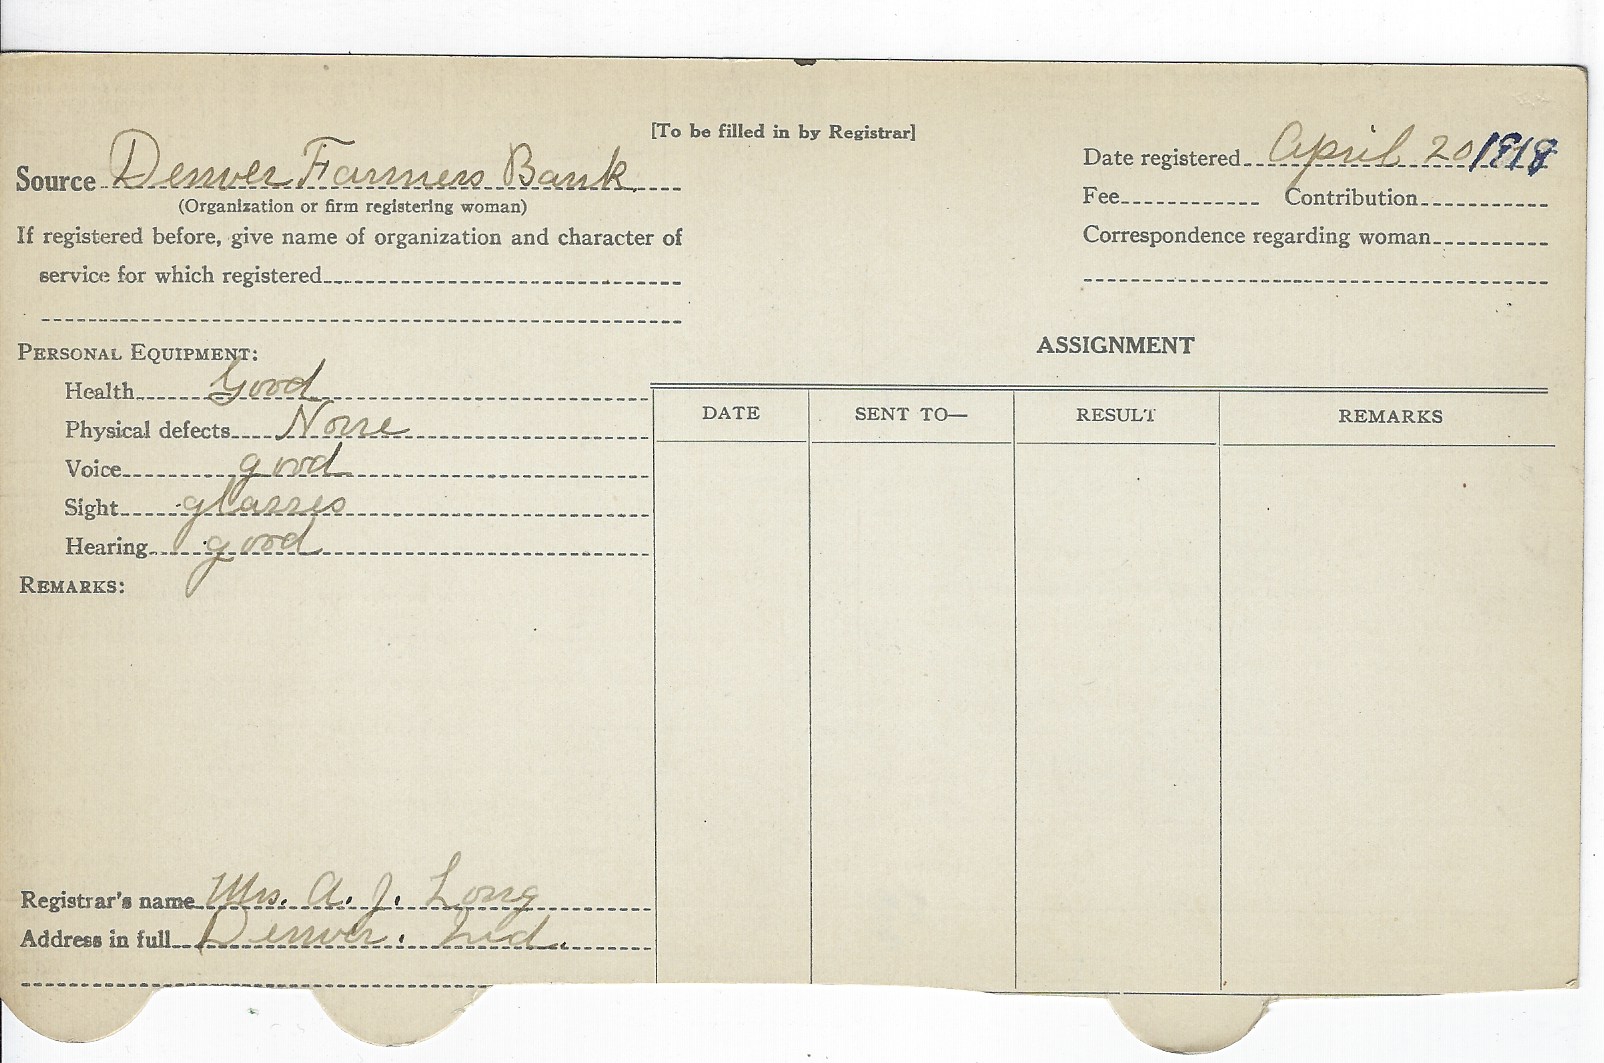 [To be filled in by Registrar]
Source Denver Farmers Bank
(Organization or firm registering woman)
If registered before, give name of organization and character of
service for which registered
PERSONAL EQUIPMENT:
Health Good
Physical defects None
Voice good
Sight glasses
Hearing good
REMARKS:
Registrar's name Mrs. A. J. Long
Address in full Denver. Ind.
Date registered April 20 1918
Fee Contribution
Correspondence regarding woman
ASSIGNMENT
DATE SENT TO— RESULT REMARKS